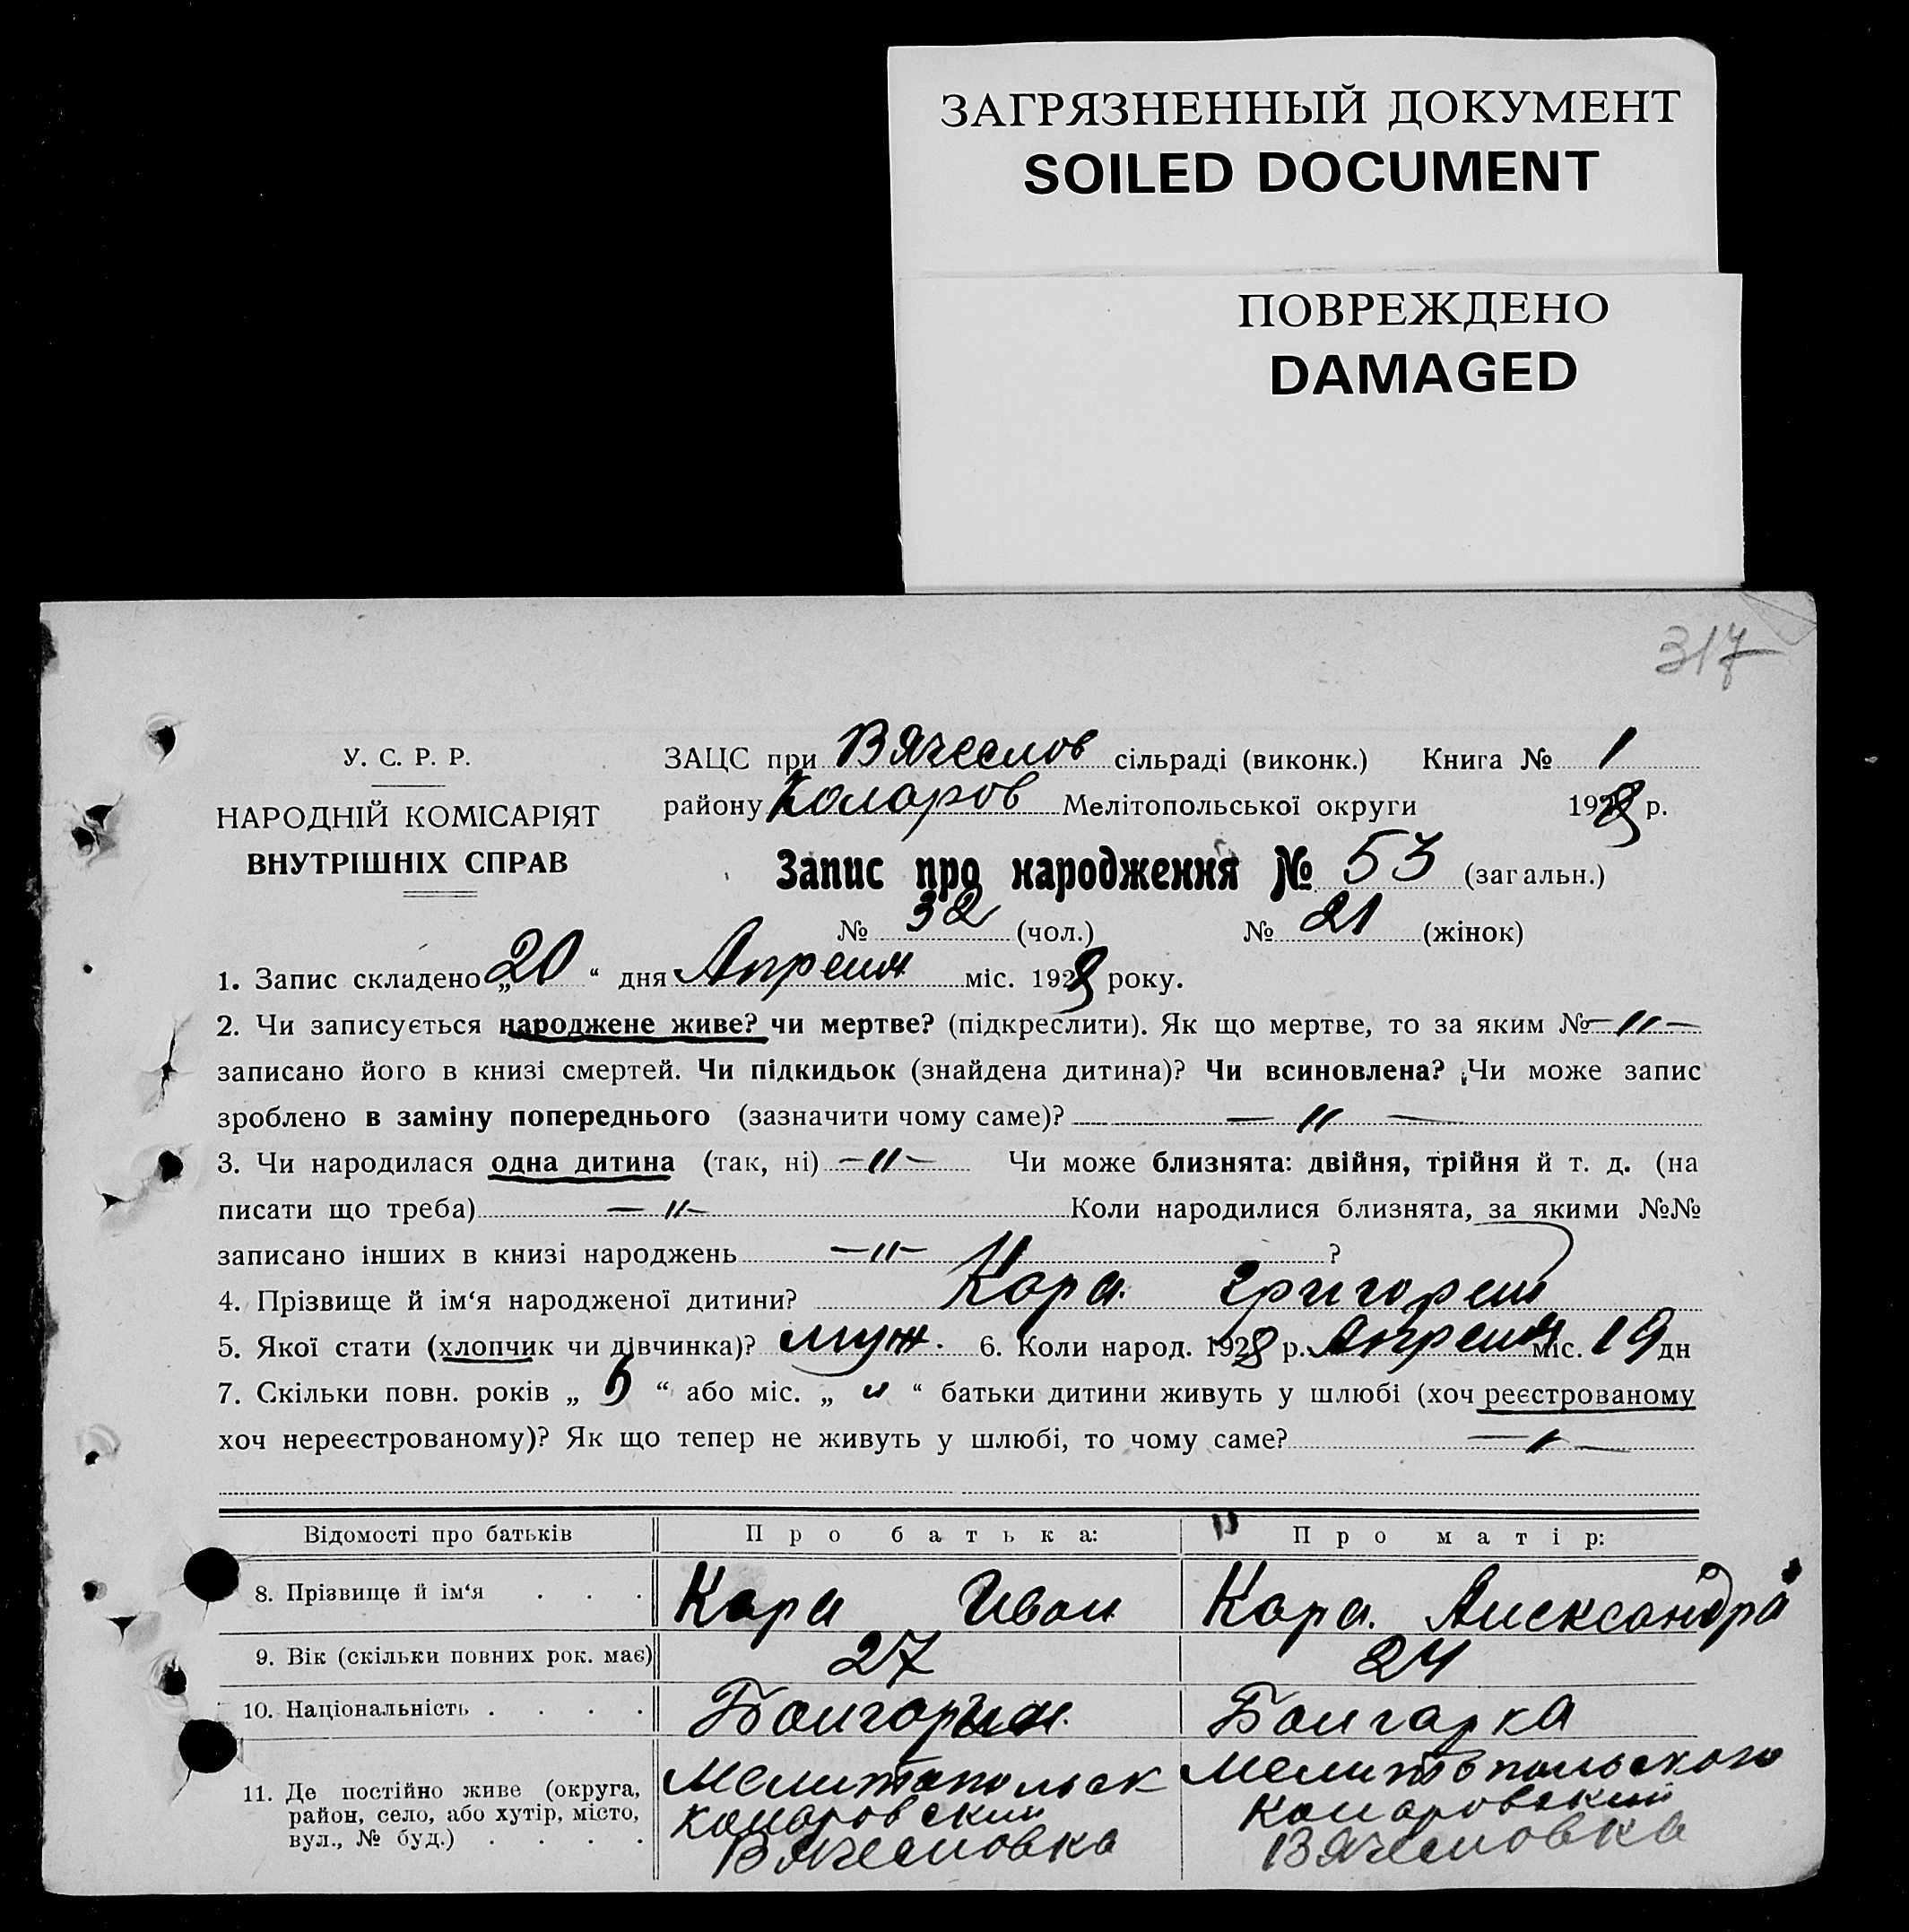 ЗАГРЯЗНЕННЫЙ ДОКУМЕНТ
SOILED DOCUMENT
ПОВРЕЖДЕНО
DAMAGED
317
У. С. Р. Р.
НАРОДНІЙ КОМІСАРІЯТ
ВНУТРІШНІХ СПРАВ
ЗАЦС при Вячеслов сільраді (виконк.) Книга № 1
району Коларов Мелітопольської округи 1928 р.
Запис про народження № 53 (загальн.)
№ 32 (чол.) № 21 (жінок)
1. Запис складено „20“ дня Апреля міс. 1928 року.
2. Чи записується народжене живе? чи мертве? (підкреслити). Як що мертве, то за яким № —„—
записано його в книзі смертей. Чи підкидьок (знайдена дитина)? Чи всиновлена? Чи може запис
зроблено в заміну попереднього (зазначити чому саме)? — „ —
3. Чи народилася одна дитина (так, ні) —„— Чи може близнята: двійня, трійня й т. д. (на
писати що треба) —„— Коли народилися близнята, за якими №№
записано інших в книзі народжень —„— ?
4. Прізвище й ім‘я народженої дитини? Кара Григорий
5. Якої стати (хлопчик чи дівчинка)? муж. 6. Коли народ. 1928 р. Апреля міс. 19 дн
7. Скільки повн. років „ “ або міс. „ „ “ батьки дитини живуть у шлюбі (хоч реєстрованому
хоч нереєстрованому)? Як що тепер не живуть у шлюбі, то чому саме? —„—
Відомості про батьків Про батька: Про матір:
8. Прізвище й ім‘я . . . Кара Иван Кара Александра
9. Вік (скільки повних рок. має) 27 24
10. Національність . . . . Болгарин Болгарка
11. Де постійно живе (округа, Мелитопольск Мелитопольского
район, село, або хутір, місто, Коларовский Коларовский
вул., № буд.) . . . . Вячеловка Вячеловка